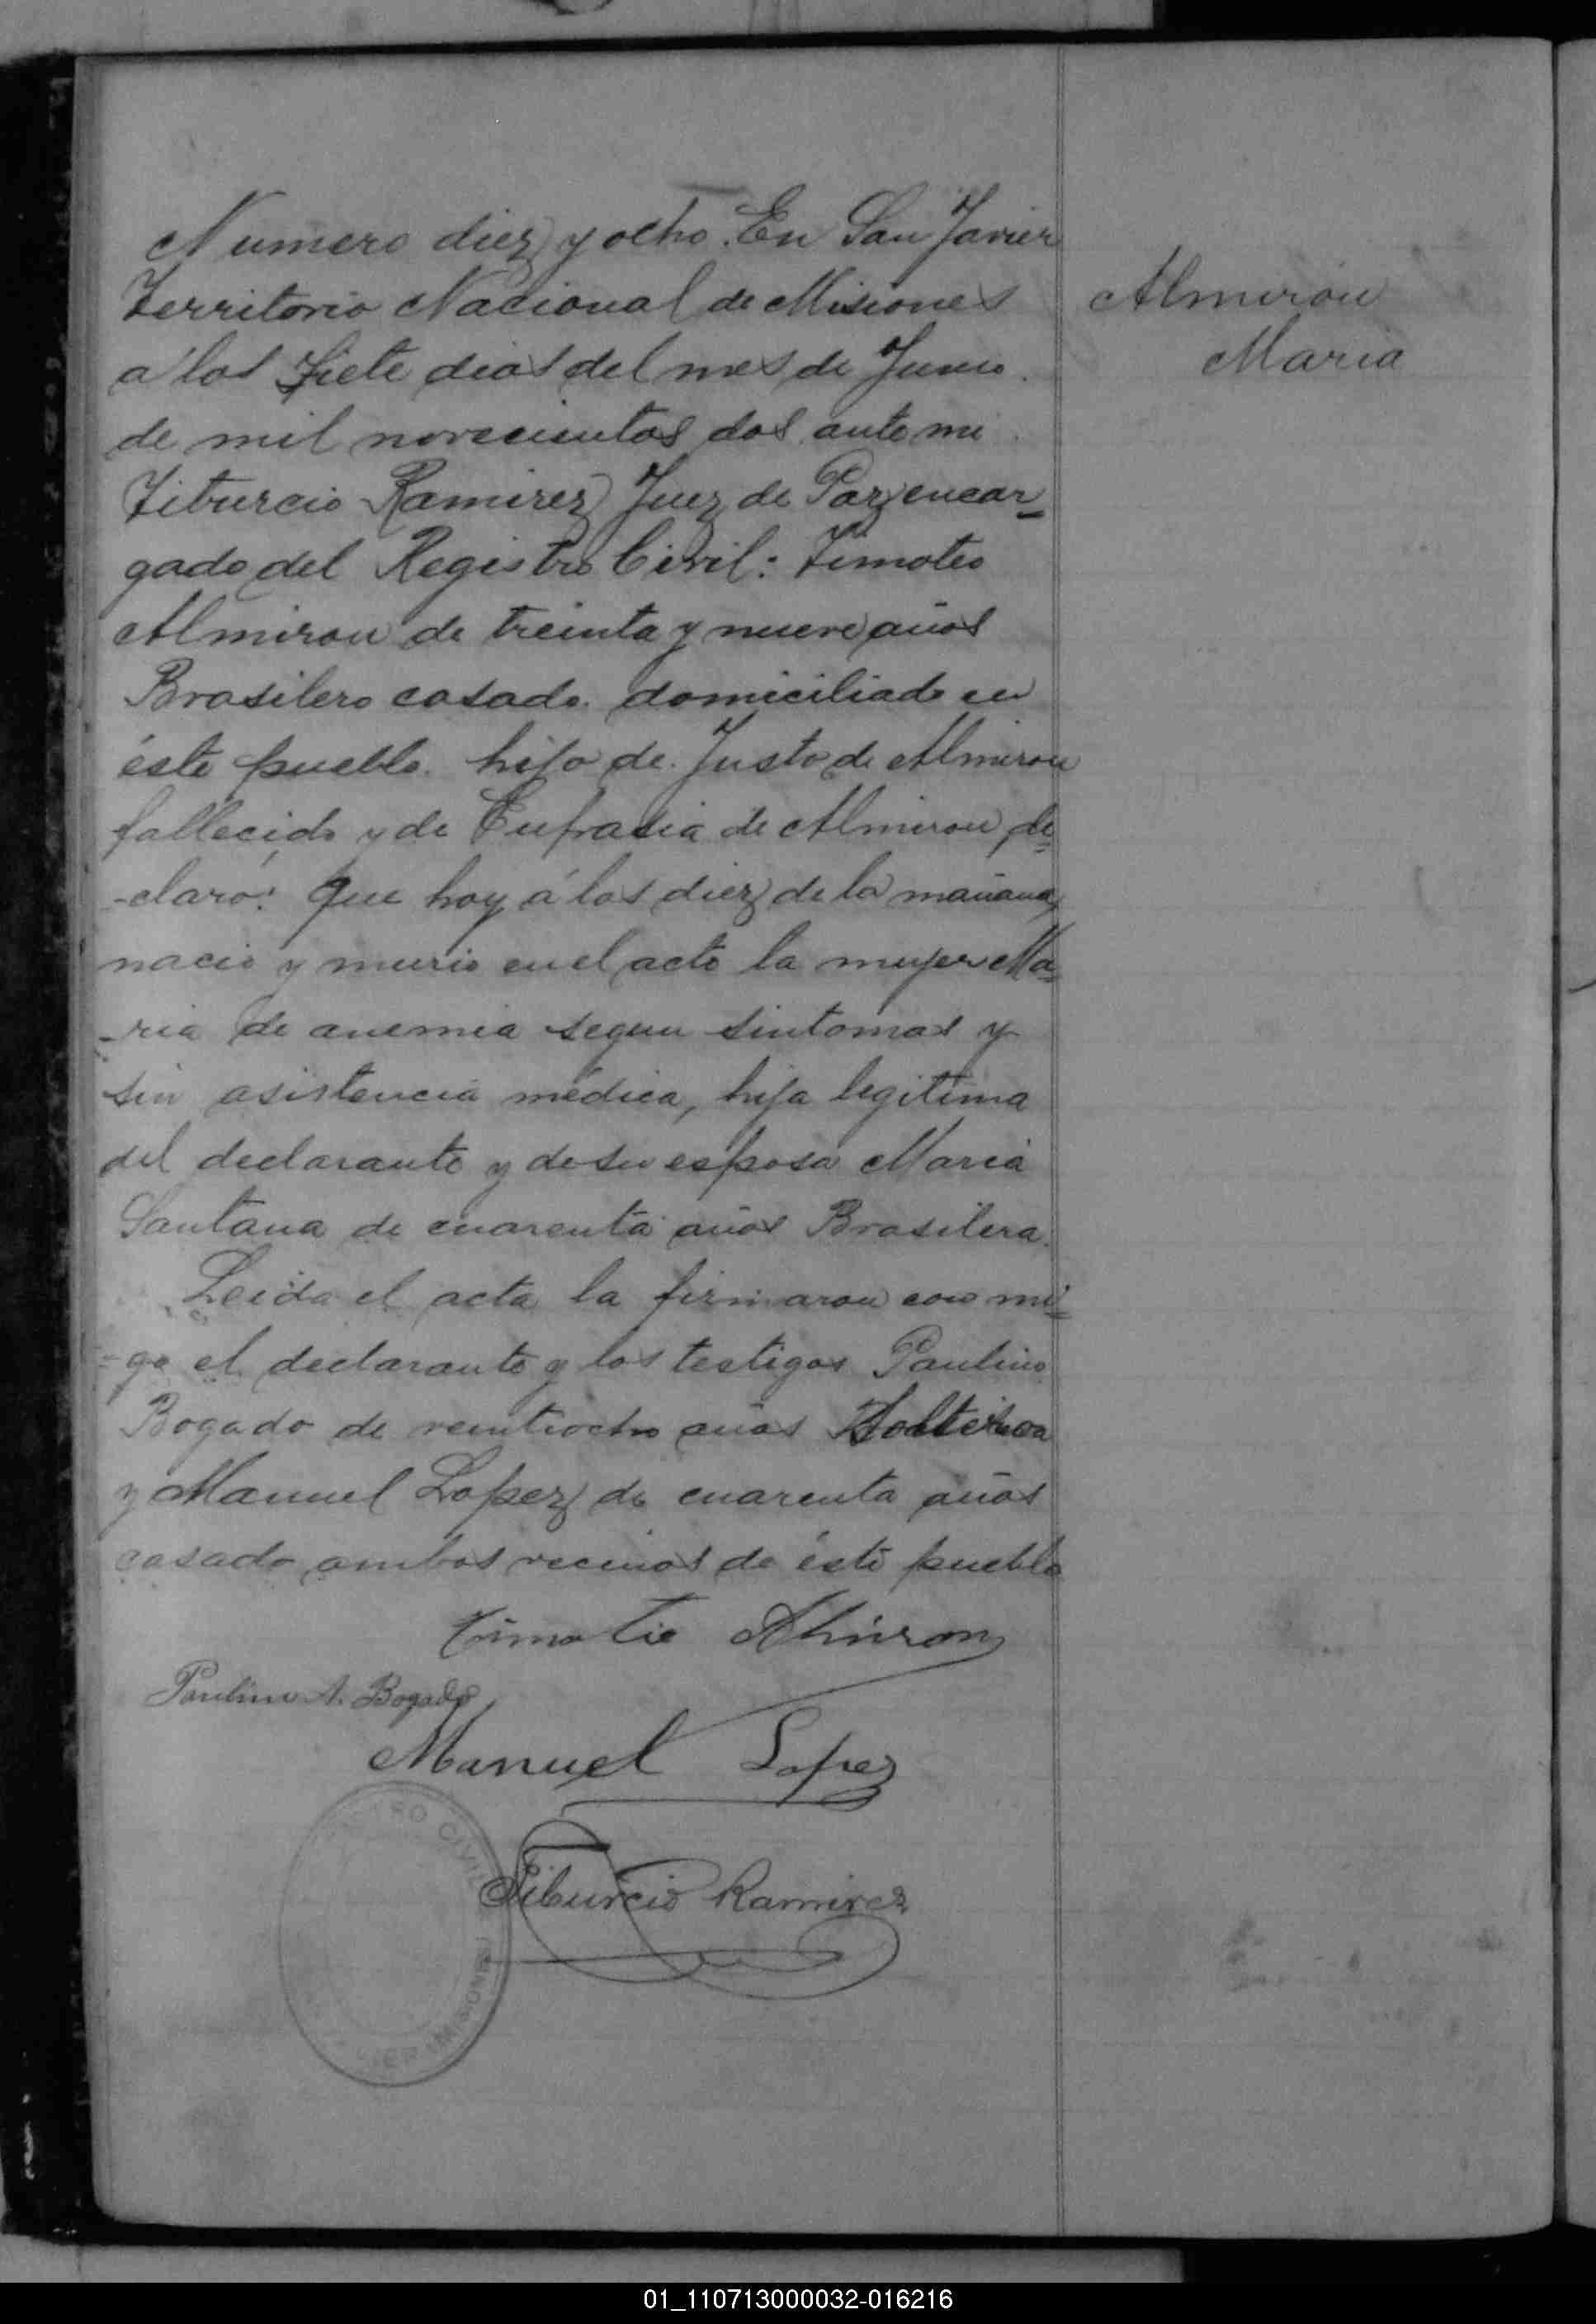 Numero diez y ocho. En San Javier
Territorio Nacional de Misiones
Almiron
Maria
a los siete dias del mes de Junio
de mil novecientos dos ante mi
Tiburcio Ramirez Juez de Paz encar-
gado del Registro Civil: Timoteo
Almiron de treinta y nueve años
Brasilero casado domiciliado en
éste pueblo hijo de Justo de Almiron
fallecido y de Eufrasia de Almiron, de-
-claró: Que hoy á las diez de la mañana
nacio y murio en el acto la mujer Ma-
-ria de anemia segun sintomas y
sin asistencia médica, hija legitima
del declarante y de su esposa Maria
Santana de cuarenta años Brasilera.
Leida el acta la firmaron con mi-
-go el declarante y los testigos Paulino
Bogado de veintiocho años
y Manuel Lopez de cuarenta años
casado ambos vecinos de éste pueblo
Timotio Almiron
Paulino A. Bogado
Manuel Lopez
Tiburcio Ramirez
CIVIL
MISIONES
01_110713000032-016216